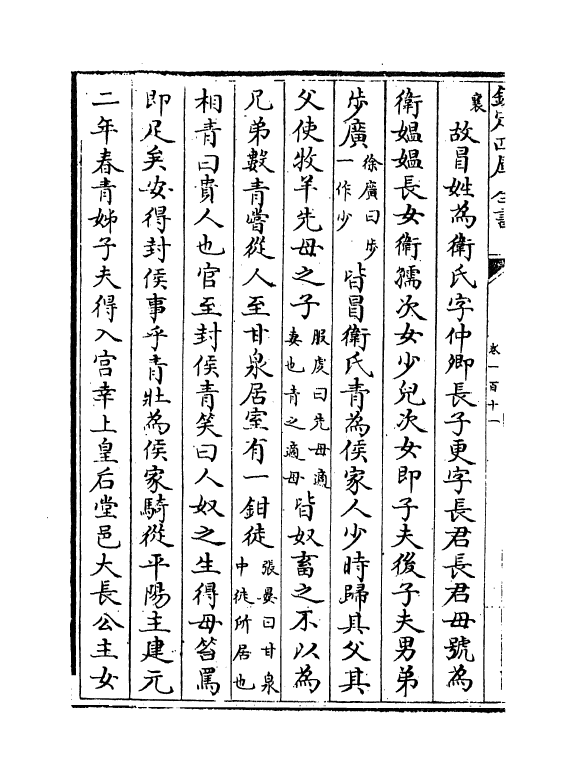 欽定四庫全書
卷一百十一
襄
故冒姓為衛氏字仲卿長子更字長君長君母號為
衛媪媪長女衛孺次女少兒次女即子夫後子夫男弟
步廣徐廣曰步一作少皆冒衛氏青為侯家人少時歸其父其
父使牧羊先母之子服虔曰先母適妻也青之適母皆奴畜之不以為
兄弟數青嘗從人至甘泉居室有一鉗徒張晏曰甘泉中徒所居也
相青曰貴人也官至封侯青笑曰人奴之生得母笞罵
即足矣安得封侯事乎青壯為侯家騎從平陽主建元
二年春青姊子夫得入宫幸上皇后堂邑大長公主女